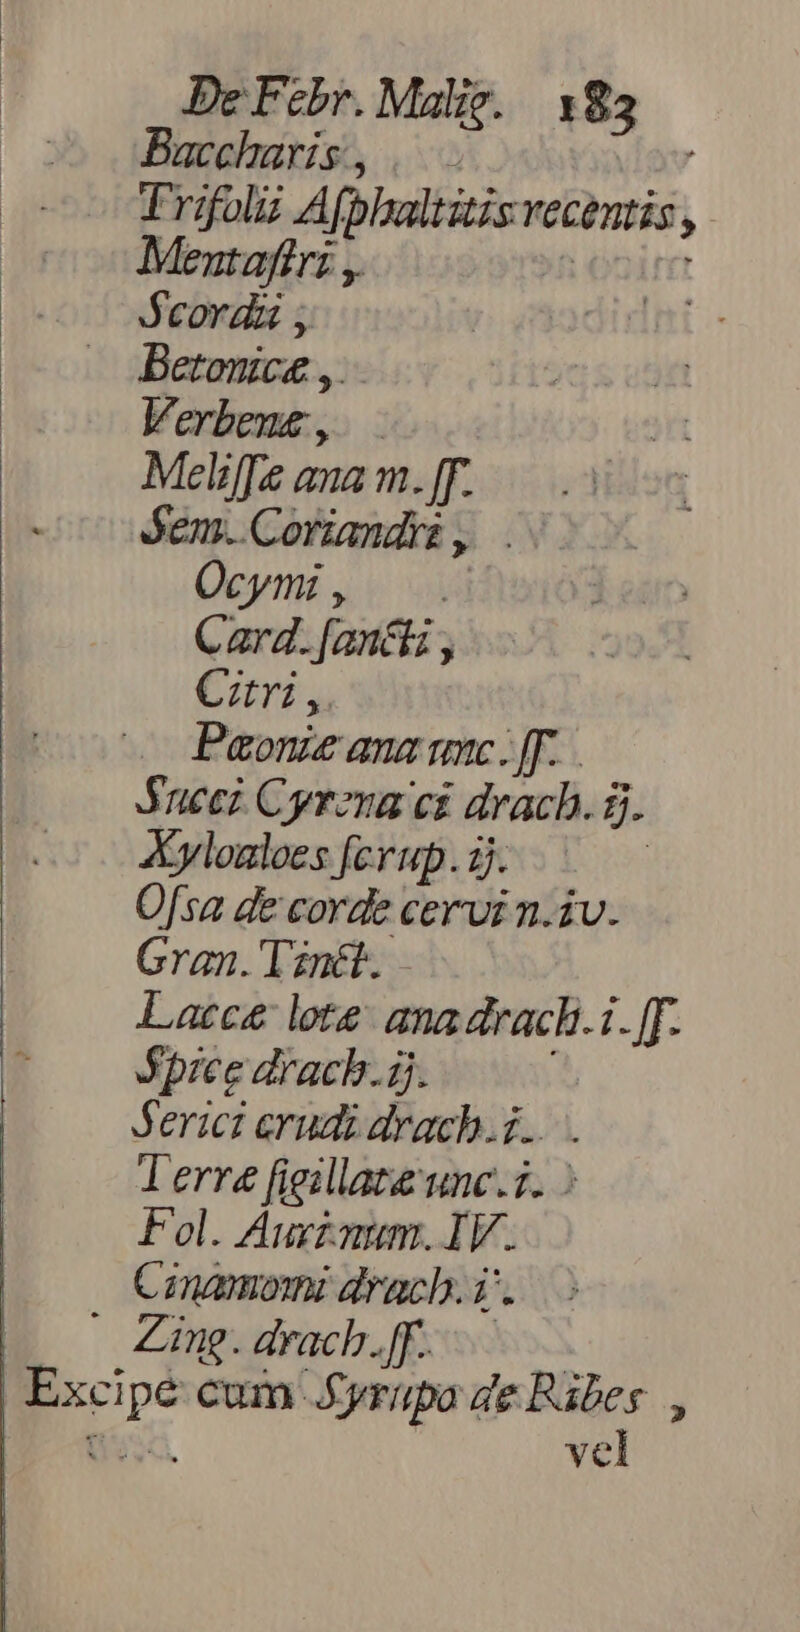 De Febr. Malig. 183
Baccharis,
Trifolii Aſphaltitis recentis,
Mentaſtri,
Scordii,
Betonicæ,
Verbenæ,
Meliſſæ ana m. ſſ.
Sem. Coriandri,
Ocymi,
Card. ſancti,
Citri,
Pæoniæ ana unc. ſſ.
Succi Cyrenaici drach. ij.
Xyloaloes ſcrup. ij.
Oſsa de corde cervi n. iv.
Gran. Tinct.
Laccæ lotæ ana drach. i. ſſ.
Spicę drach. ij.
Serici crudi drach. i.
Terræ ſigillatæ unc. i.
Fol. Auri num. IV.
Cinamomi drach. i.
Zing. drach. ſſ.
Excipe cum Syrupo de Ribes,
vel